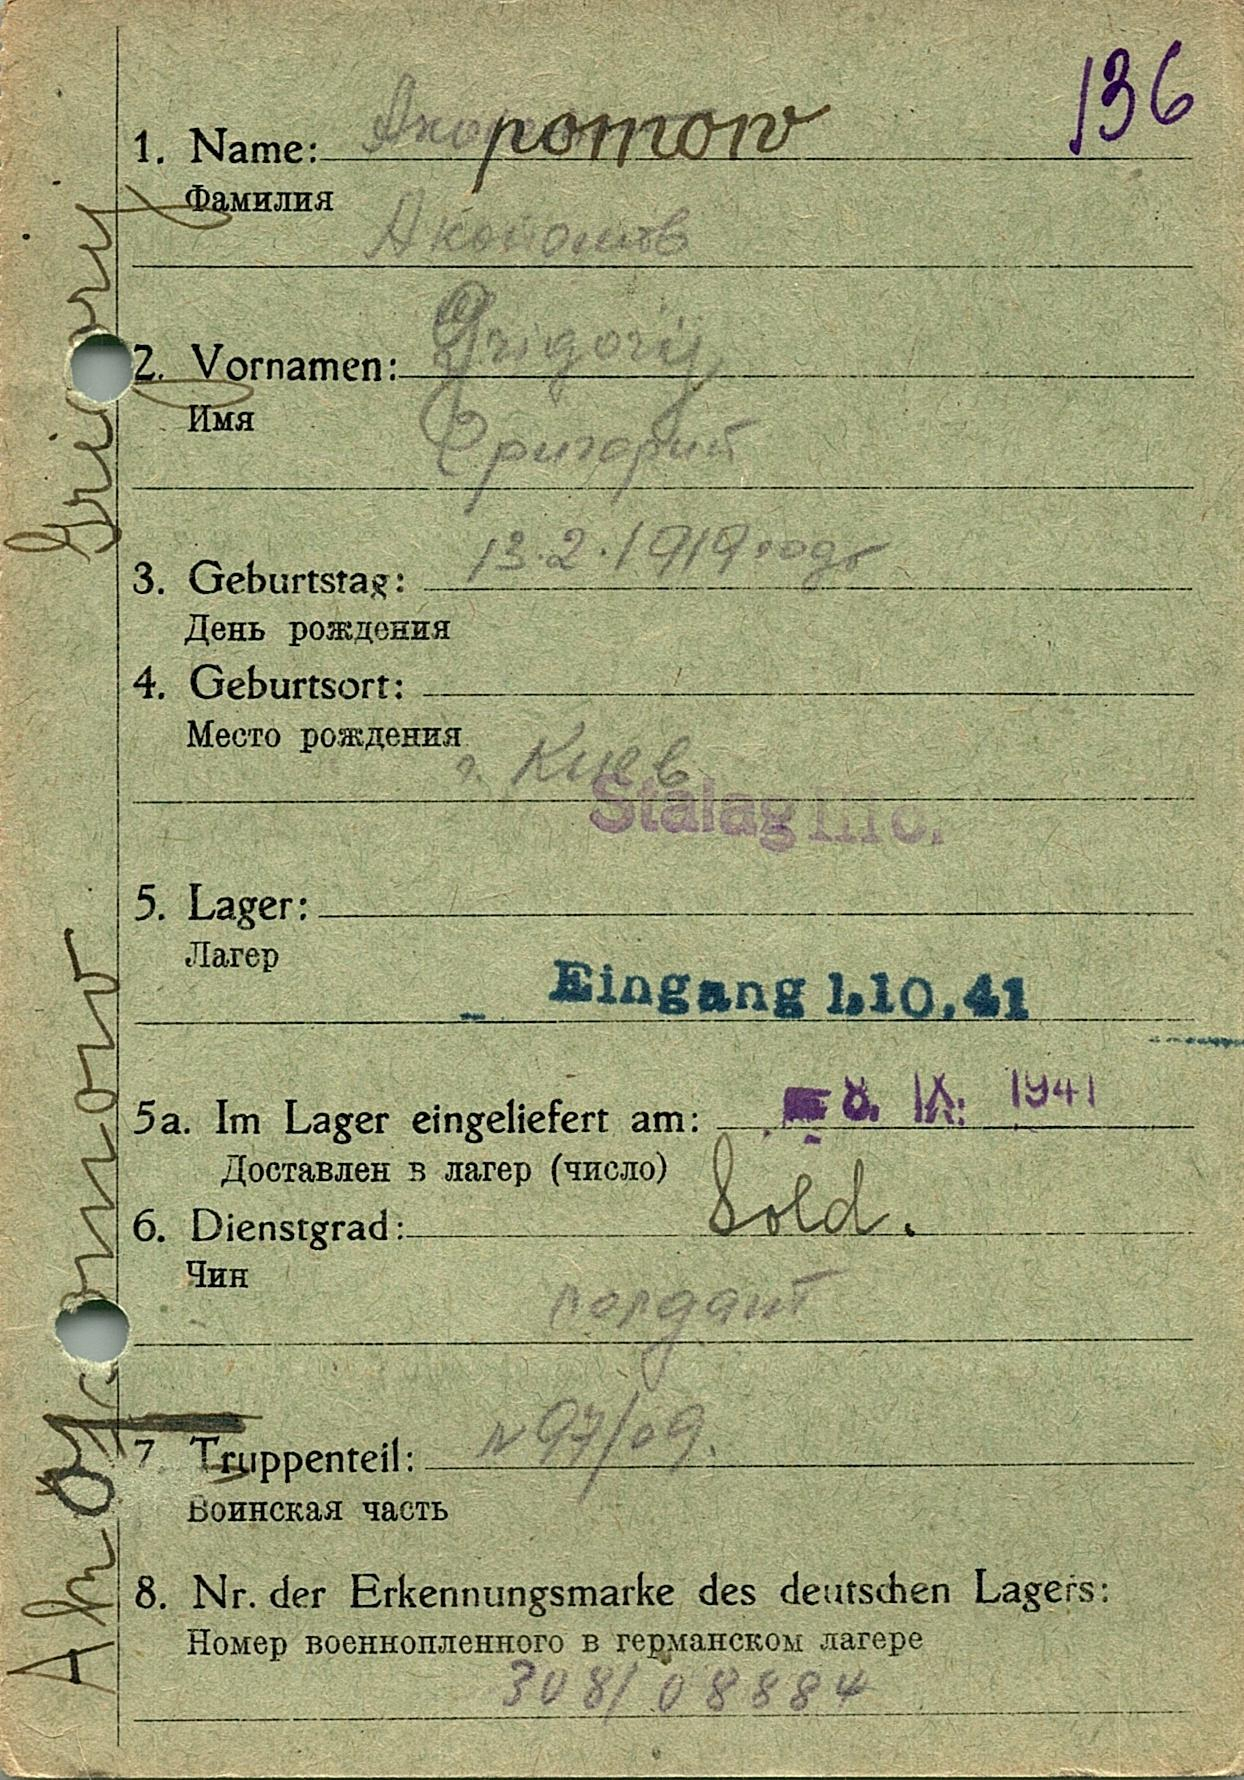 136
1. Name: pomow
Фамилия
2. Vornamen: Grigorij
Имя Григорий
3. Geburtstag: 13.2.1919 года
День рождения
4. Geburtsort:
Место рождения
г. Киев
Stalag III C.
5. Lager:
Лагер
Eingang 1.10.41
5a. Im Lager eingeliefert am: 8. IX. 1941
Доставлен в лагер (число)
6. Dienstgrad: Sold.
Чин
солдат
7. Truppenteil: N 97/09.
Воинская часть
8. Nr. der Erkennungsmarke des deutschen Lagers:
Номер военнопленного в германском лагере
308/08884
Grigory